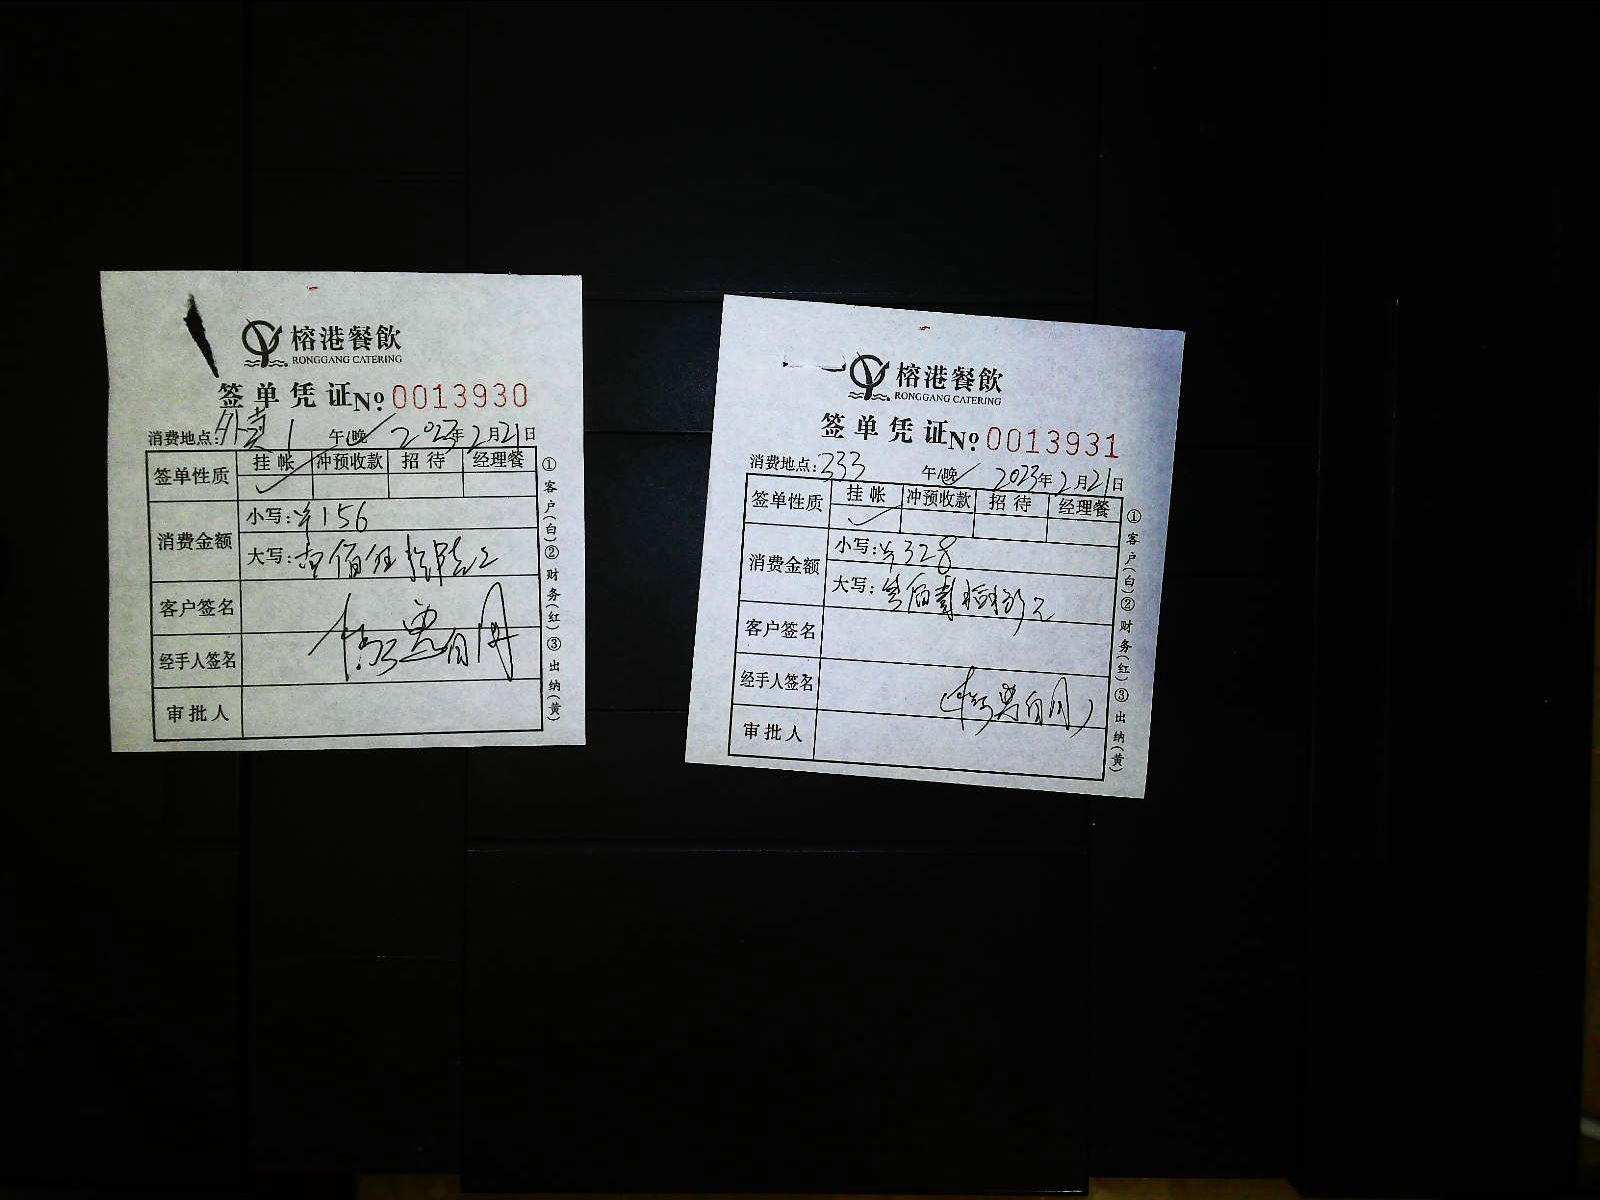 榕港餐飲
RONGGANG CATERING
签单凭证 No. 0013930
消费地点: 外卖1 午/晚 2023年2月21日
签单性质 挂帐 冲预收款 招待 经理餐
消费金额 小写: ¥156
大写: 壹佰伍拾陆元
客户签名
经手人签名
审批人
①客户(白)②财务(红)③出纳(黄)
榕港餐飲
RONGGANG CATERING
签单凭证 No. 0013931
消费地点: 333 午/晚 2023年2月21日
签单性质 挂帐 冲预收款 招待 经理餐
消费金额 小写: ¥328
大写: 叁佰贰拾捌元
客户签名
经手人签名
审批人
①客户(白)②财务(红)③出纳(黄)